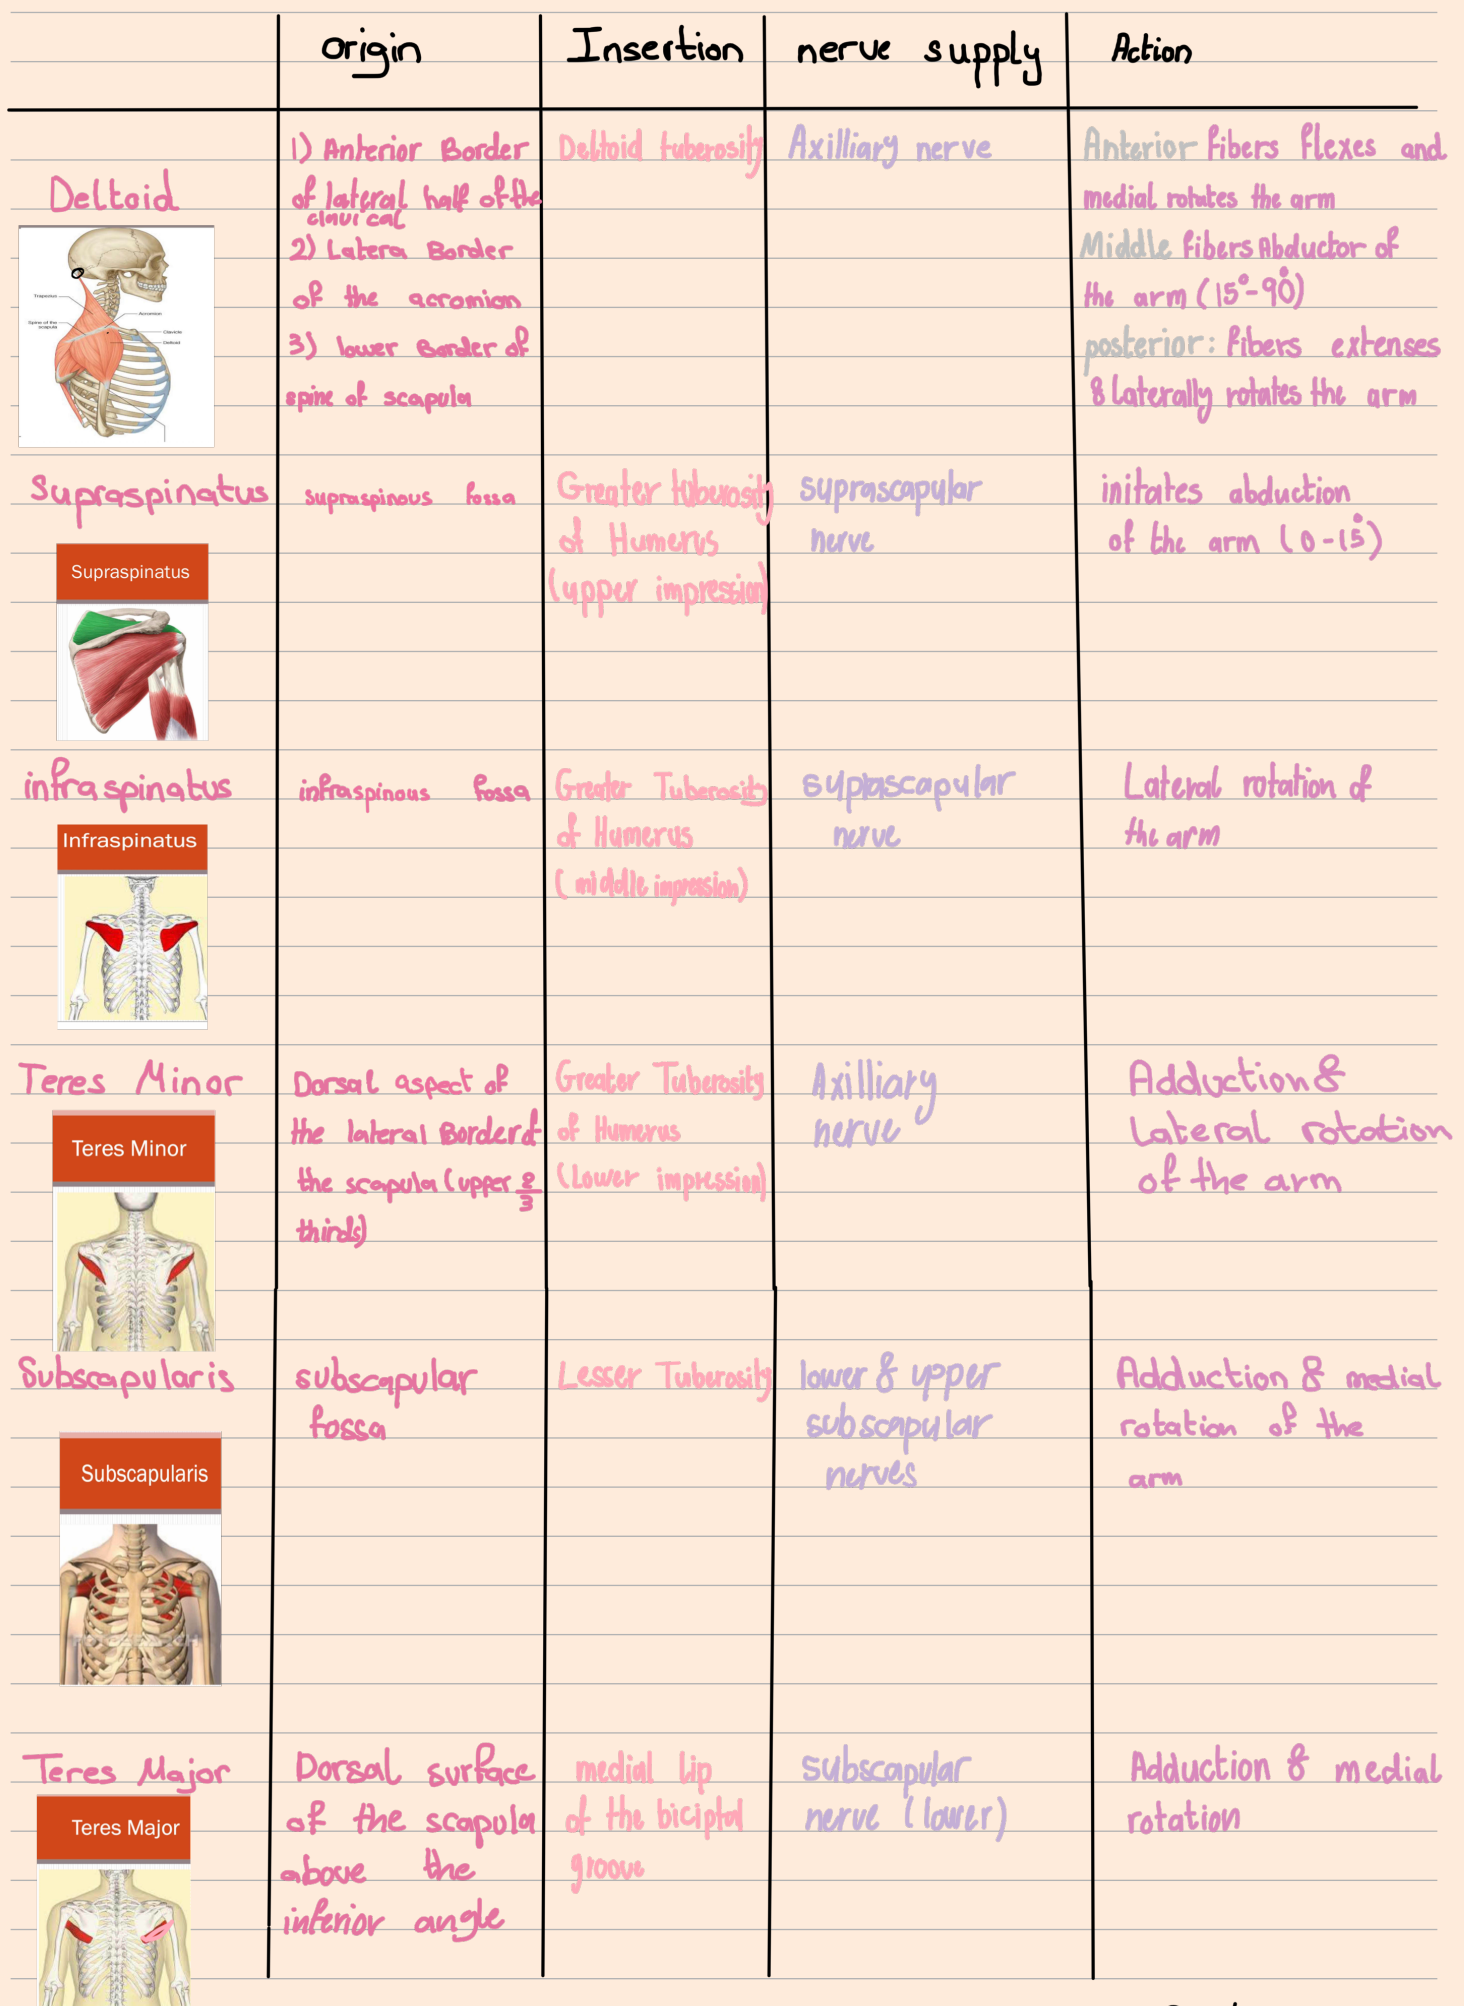 Origin Insertion nerve supply Action
Deltoid
Trapezius
Spine of the
scapula
Acromion
Clavicle
Deltoid
1) Anterior Border
of lateral half of the
clavical
2) Latera Border
of the acromion
3) lower Border of
spine of scapula
Deltoid tuberosity
Axilliary nerve
Anterior fibers flexes and
medial rotates the arm
Middle fibers Abductor of
the arm (15°-90°)
posterior: fibers extenses
& laterally rotates the arm
Supraspinatus
Supraspinatus
supraspinous fossa
Greater tuberosity
of Humerus
(upper impression)
suprascapular
nerve
initates abduction
of the arm (0-15°)
infraspinatus
Infraspinatus
infraspinous fossa
Greater Tuberosity
of Humerus
(middle impression)
suprascapular
nerve
Lateral rotation of
the arm
Teres Minor
Teres Minor
Dorsal aspect of
the lateral Border of
the scapula (upper 2/3
thirds)
Greater Tuberosity
of Humerus
(Lower impression)
Axilliary
nerve
Adduction &
Lateral rotation
of the arm
Subscapularis
Subscapularis
subscapular
fossa
Lesser Tuberosity
lower & upper
subscapular
nerves
Adduction & medial
rotation of the
arm
Teres Major
Teres Major
Dorsal surface
of the scapula
above the
inferior angle
medial lip
of the biciptal
groove
subscapular
nerve (lower)
Adduction & medial
rotation